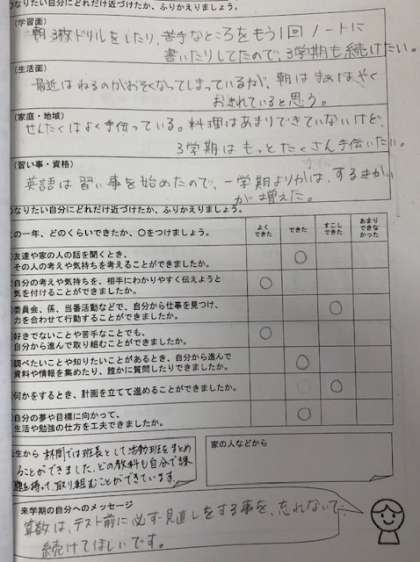 なりたい自分にどれだけ近づけたか、ふりかえりましょう。
(学習面)
朝3枚ドリルをしたり、苦手なところをもう1回ノートに
書いたりしてたので、3学期も続けたい。
(生活面)
最近はねるのがおそくなってしまっているが、朝はすばやく
おきれていると思う。
(家庭・地域)
せんたくはよく手伝っている。料理はあまりできていないけど、
3学期はもっとたくさん手伝いたい。
(習い事・資格)
英語は習い事を始めたので、一学期よりかは、するきかい
が増えた。
なりたい自分にどれだけ近づけたか、ふりかえりましょう。
の一年、どのくらいできたか、○をつけましょう。
よくできた
できた
すこしできた
あまりできなかった
友達や家の人の話を聞くとき、
その人の考えや気持ちを考えることができましたか。
自分の考えや気持ちを、相手にわかりやすく伝えようと
気を付けることができましたか。
委員会、係、当番活動などで、自分から仕事を見つけ、
力を合わせて行動することができましたか。
好きでないことや苦手なことでも、
自分から進んで取り組むことができましたか。
調べたいことや知りたいことがあるとき、自分から進んで
資料や情報を集めたり、誰かに質問したりできましたか。
何かをするとき、計画を立てて進めることができましたか。
自分の夢や目標に向かって、
生活や勉強の仕方を工夫できましたか。
生から
林間では班長として活動班をまとめ
ることができました。どの教科も自分で課
題を持って、取り組むことができています。
家の人などから
来学期の自分へのメッセージ
算数は、テスト前に必ず見直しをする事を、忘れないで、
続けてほしいです。